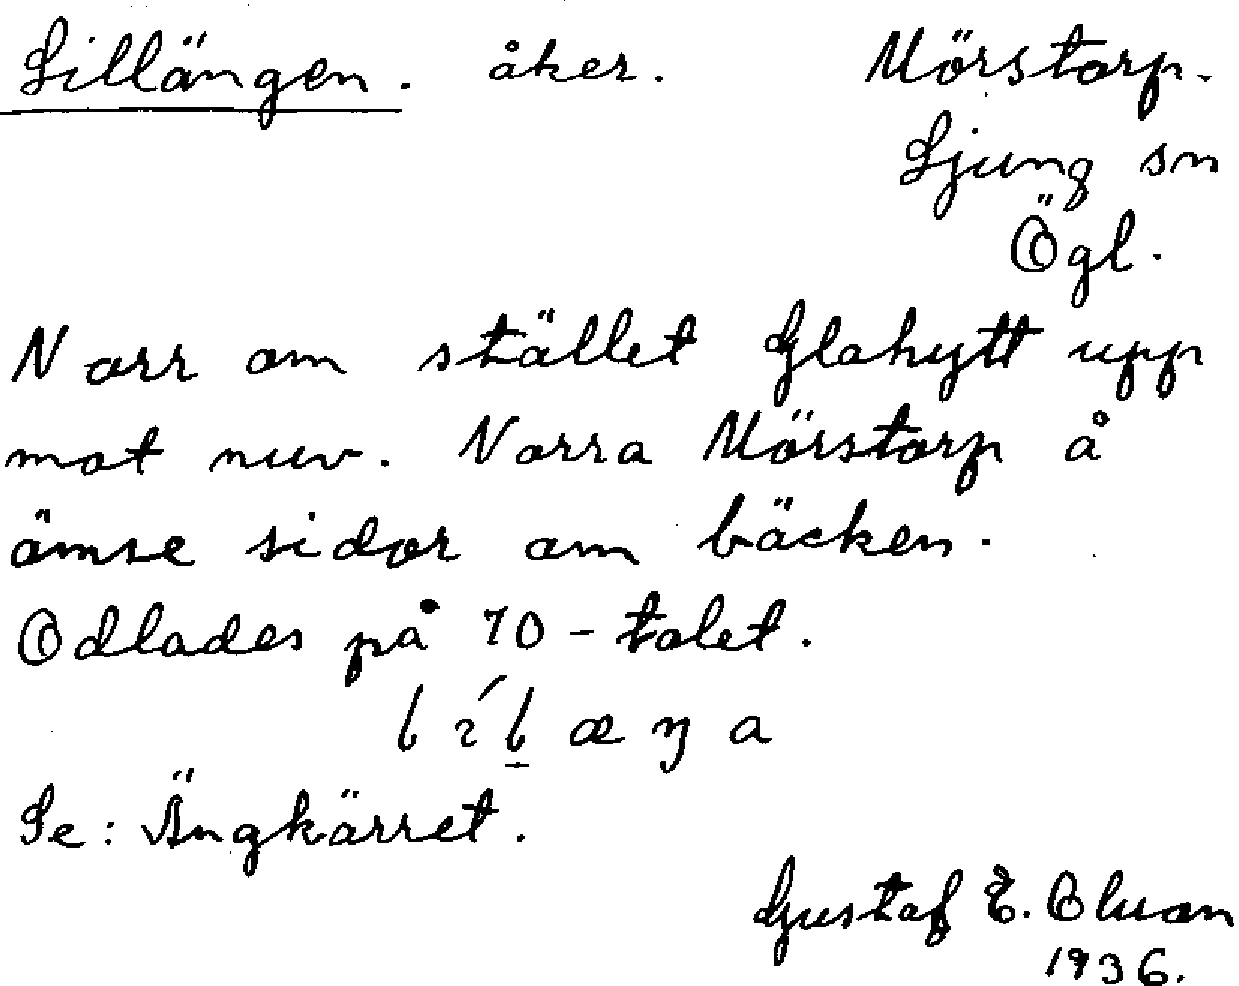 Lillängen. åker. Mörstorp.
Ljung sn
Ögl.
Norr om stället Glahytt upp
mot nuv. Norra Mörstorp å
ömse sidor om bäcken.
Odlades på 70-talet.
Se: Ängkärret.
Gustaf E.
1936.